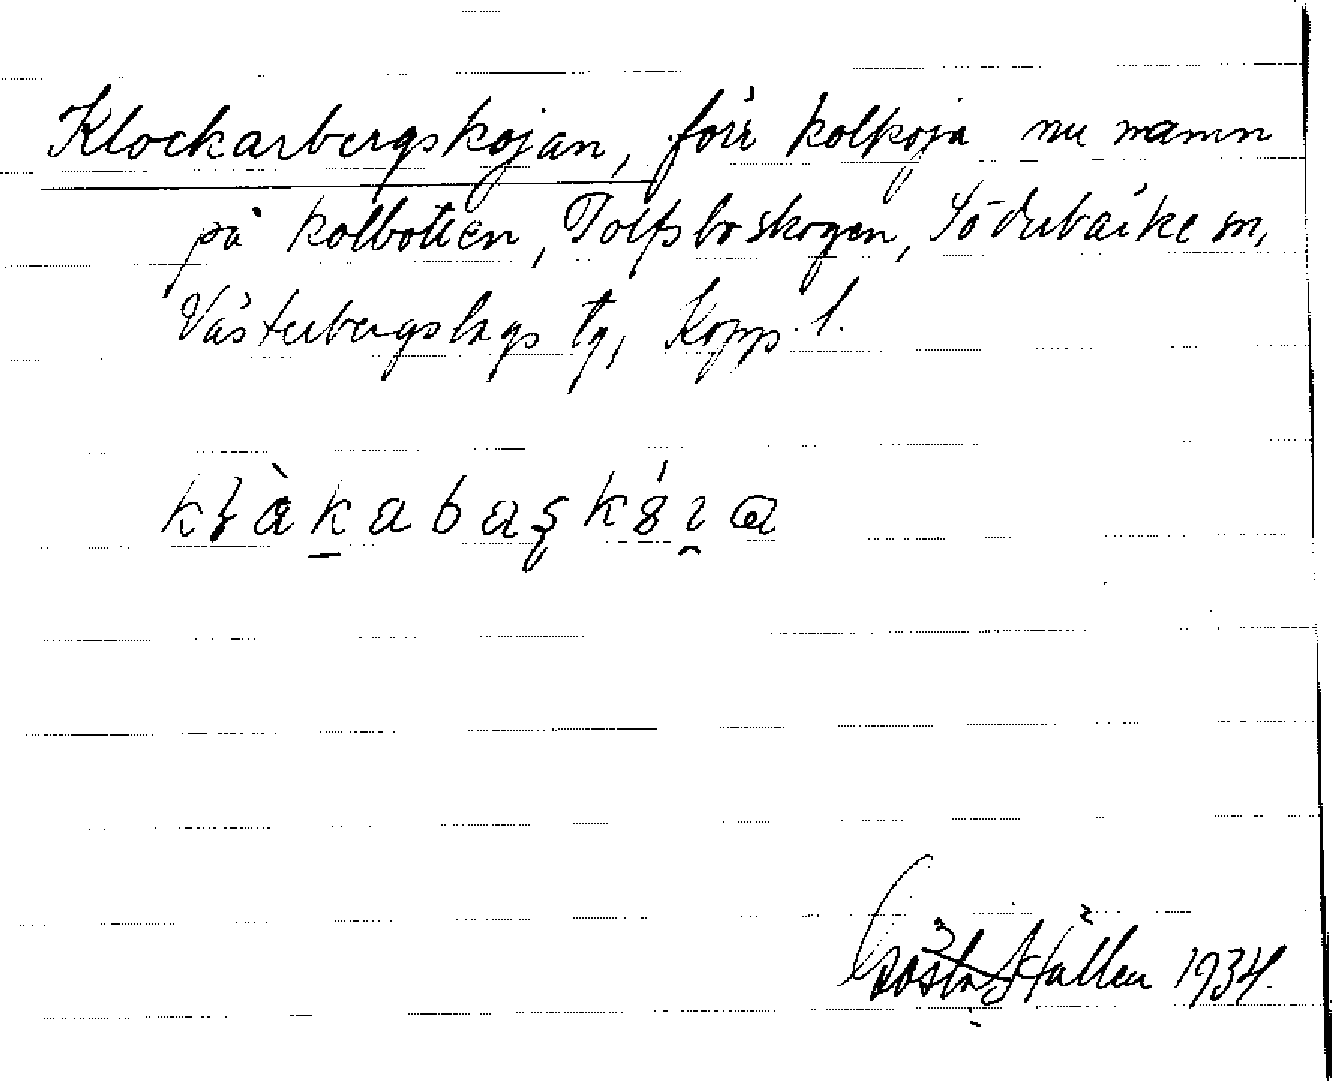 Klockarbergskojan, förr kolkoja nu namn
på kolbotten, Tolfsboskogen, Söderbärke sn,
Västerbergslags tg, Kopp. l.
Gösta Hållen 1934.